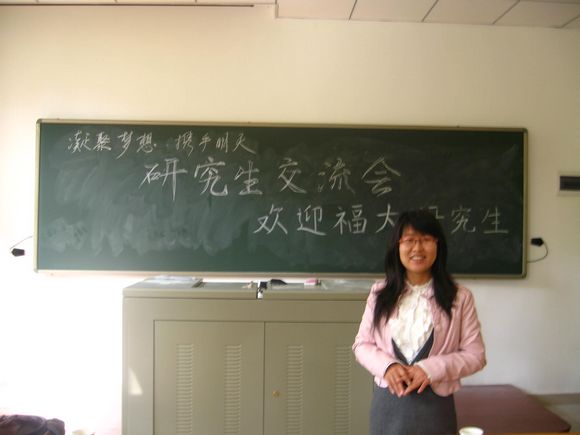 凝聚梦想 携手明天
研究生交流会
欢迎福大研究生